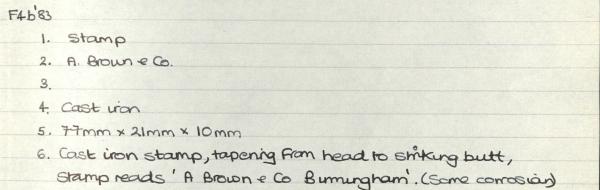 F4b'83
1. Stamp
2. A. Brown & Co.
3.
4. Cast iron
5. 77mm x 21mm x 10mm
6. Cast iron stamp, tapering from head to striking butt,
stamp reads 'A Brown & Co Burmingham'. (Some corrosion)